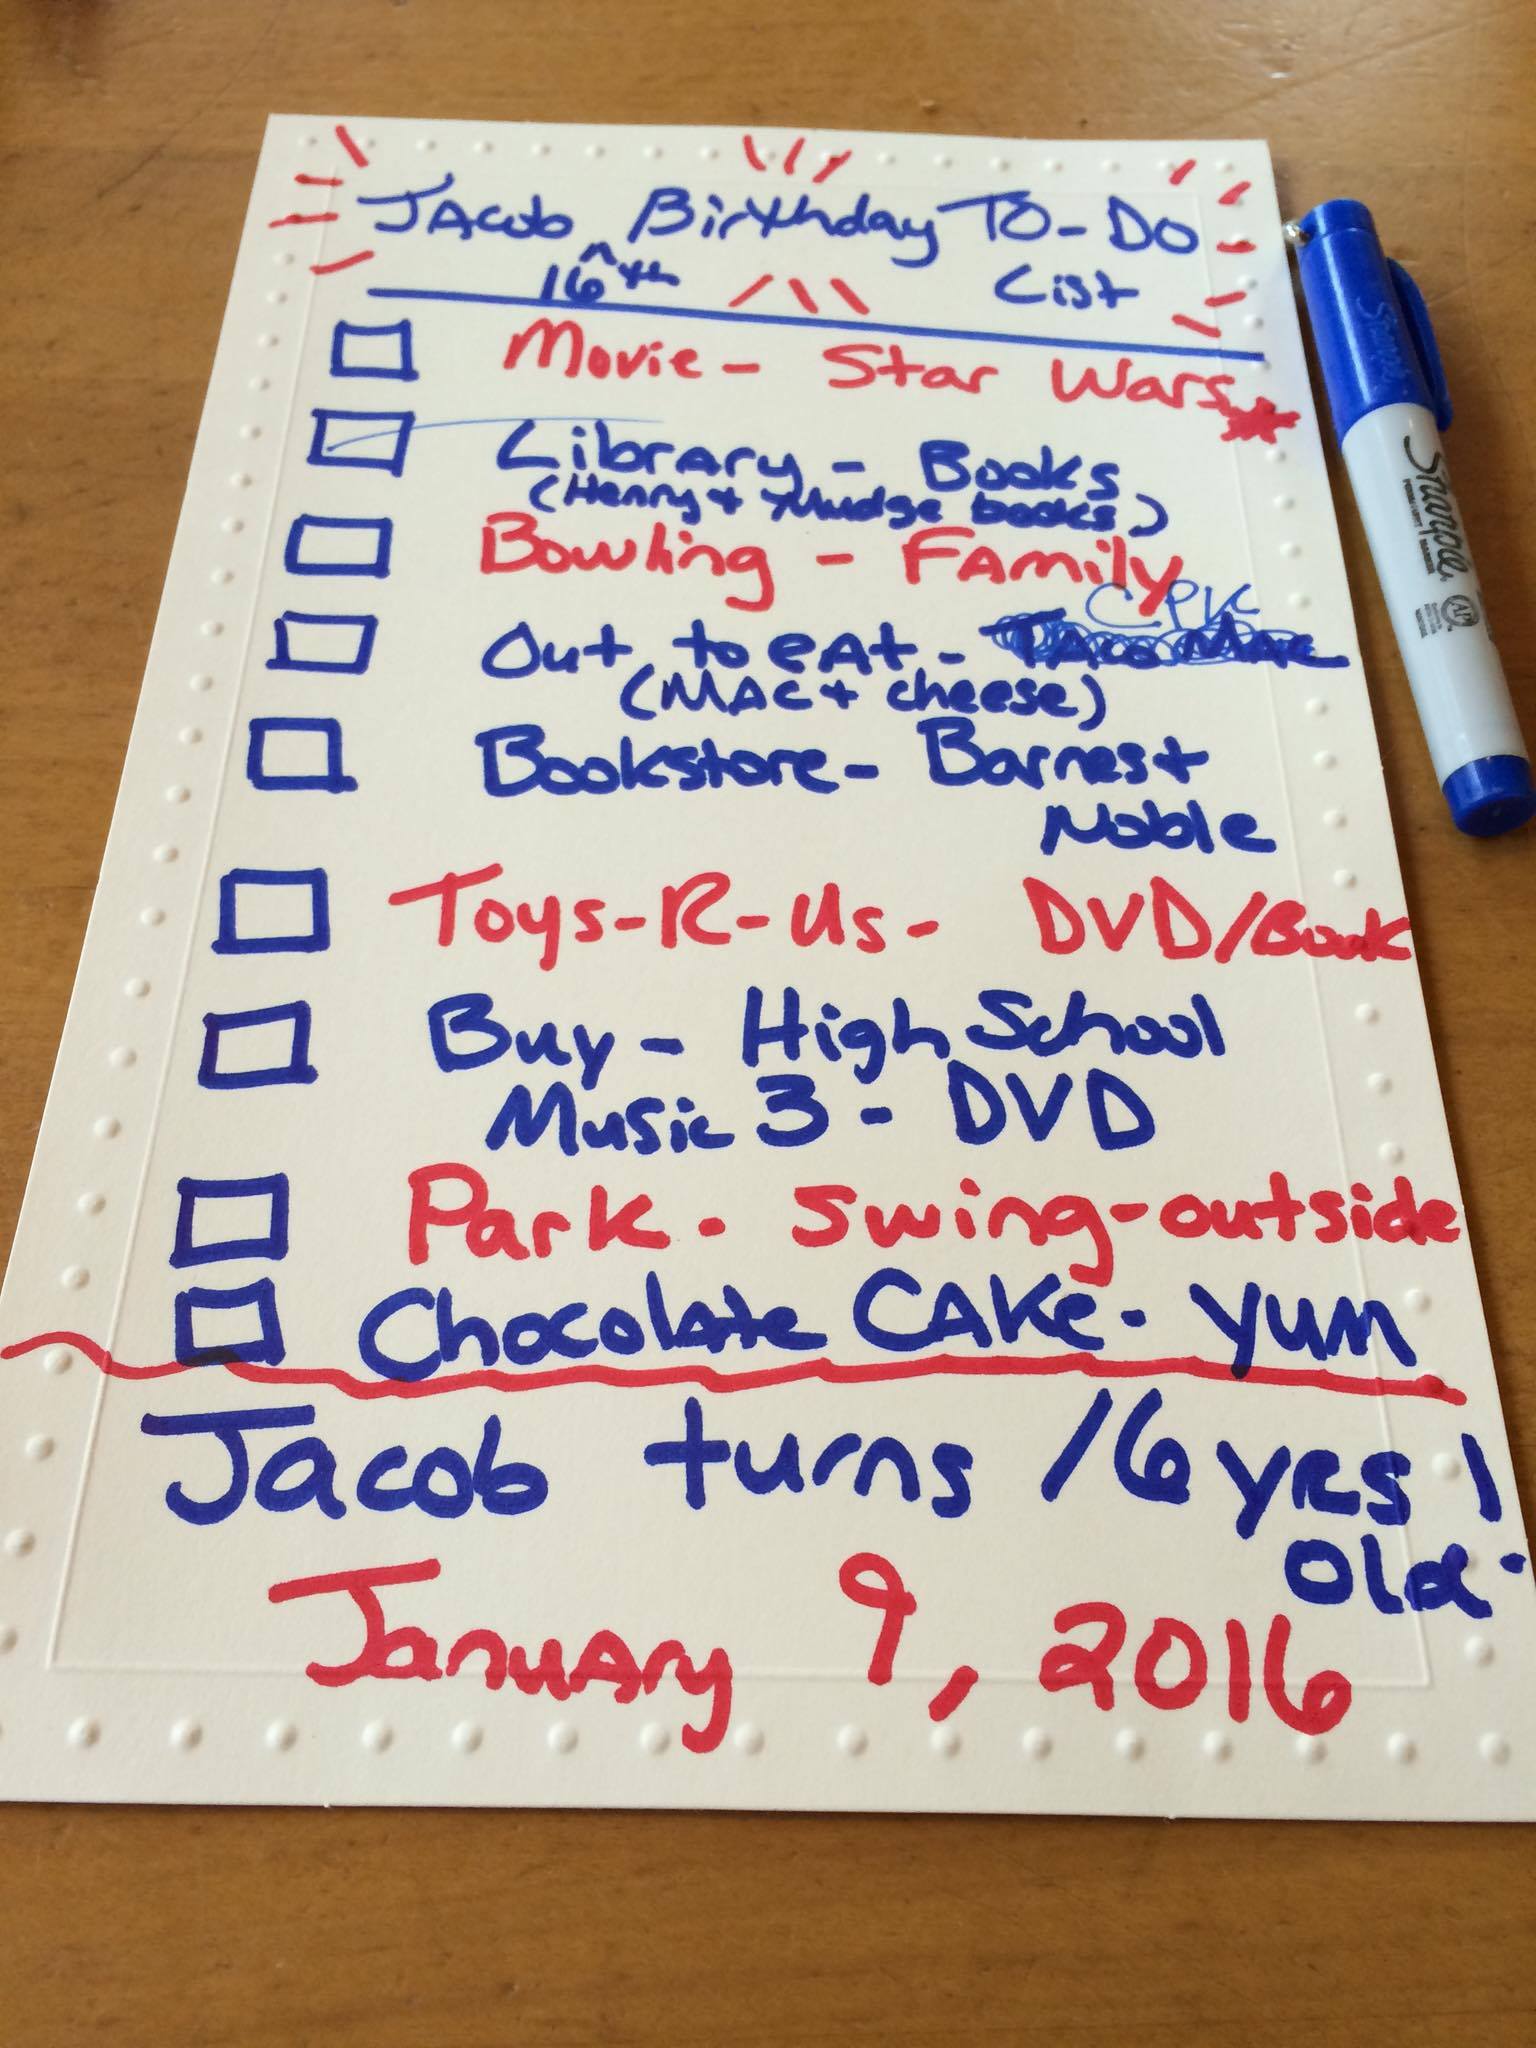 Jacob Birthday To-Do
^
16th List
Movie - Star Wars
Library - Books
(Henry + Mudge books)
Bowling - Family
CPK
Out to eat - Taco Mac
(Mac + cheese)
Bookstore - Barnes +
Noble
Toys-R-Us - DVD/Book
Buy - High School
Music 3 - DVD
Park - swing-outside
Chocolate Cake - yum
Jacob turns 16 yrs !
old
January 9, 2016
Sharpie